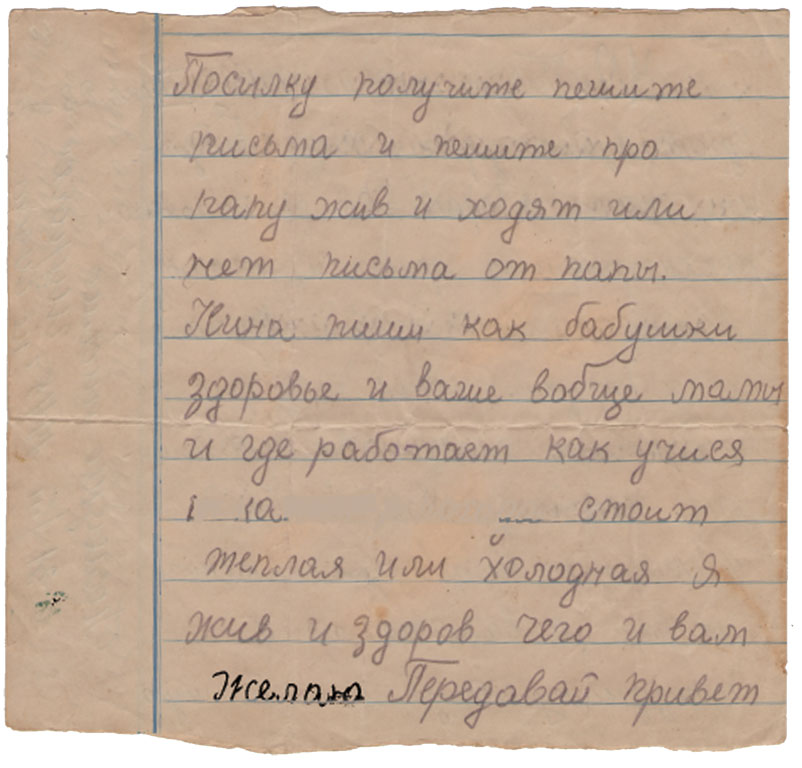 Посилку получите пешите
письма и пешите про
папу жив и ходят или
нет письма от папы.
Нина пиши как бабушки
здоровье и ваше вобще мамы
и где работает как учися
стоит
теплая или холодная я
жив и здоров чего и вам
желаю Передавай привет